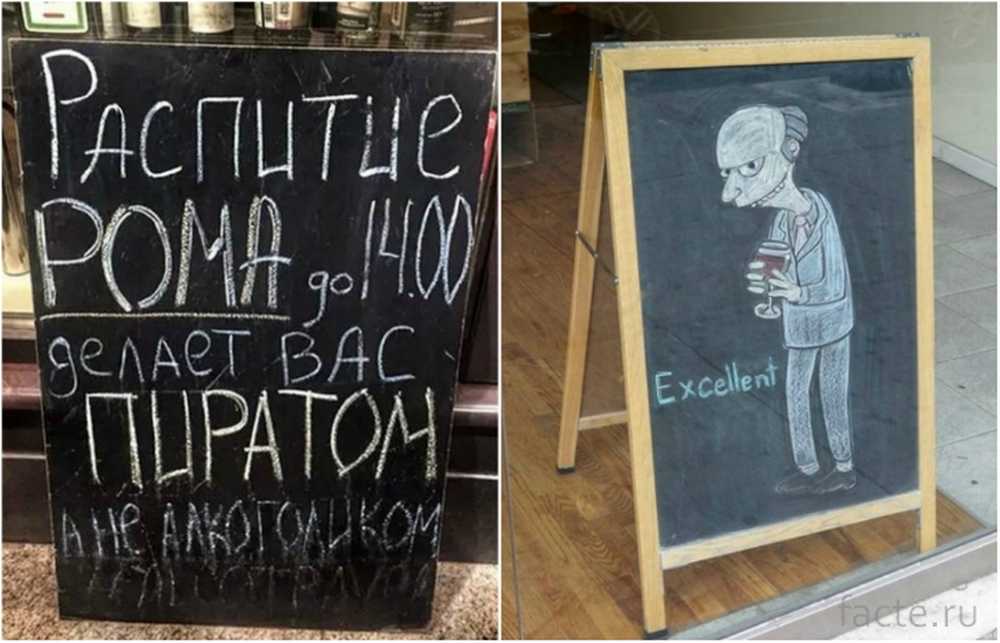 Распитие
РОМА до 14.00
делает ВАС
ПИРАТОМ
А НЕ АЛКОГОЛИКОМ
Excellent
facte.ru